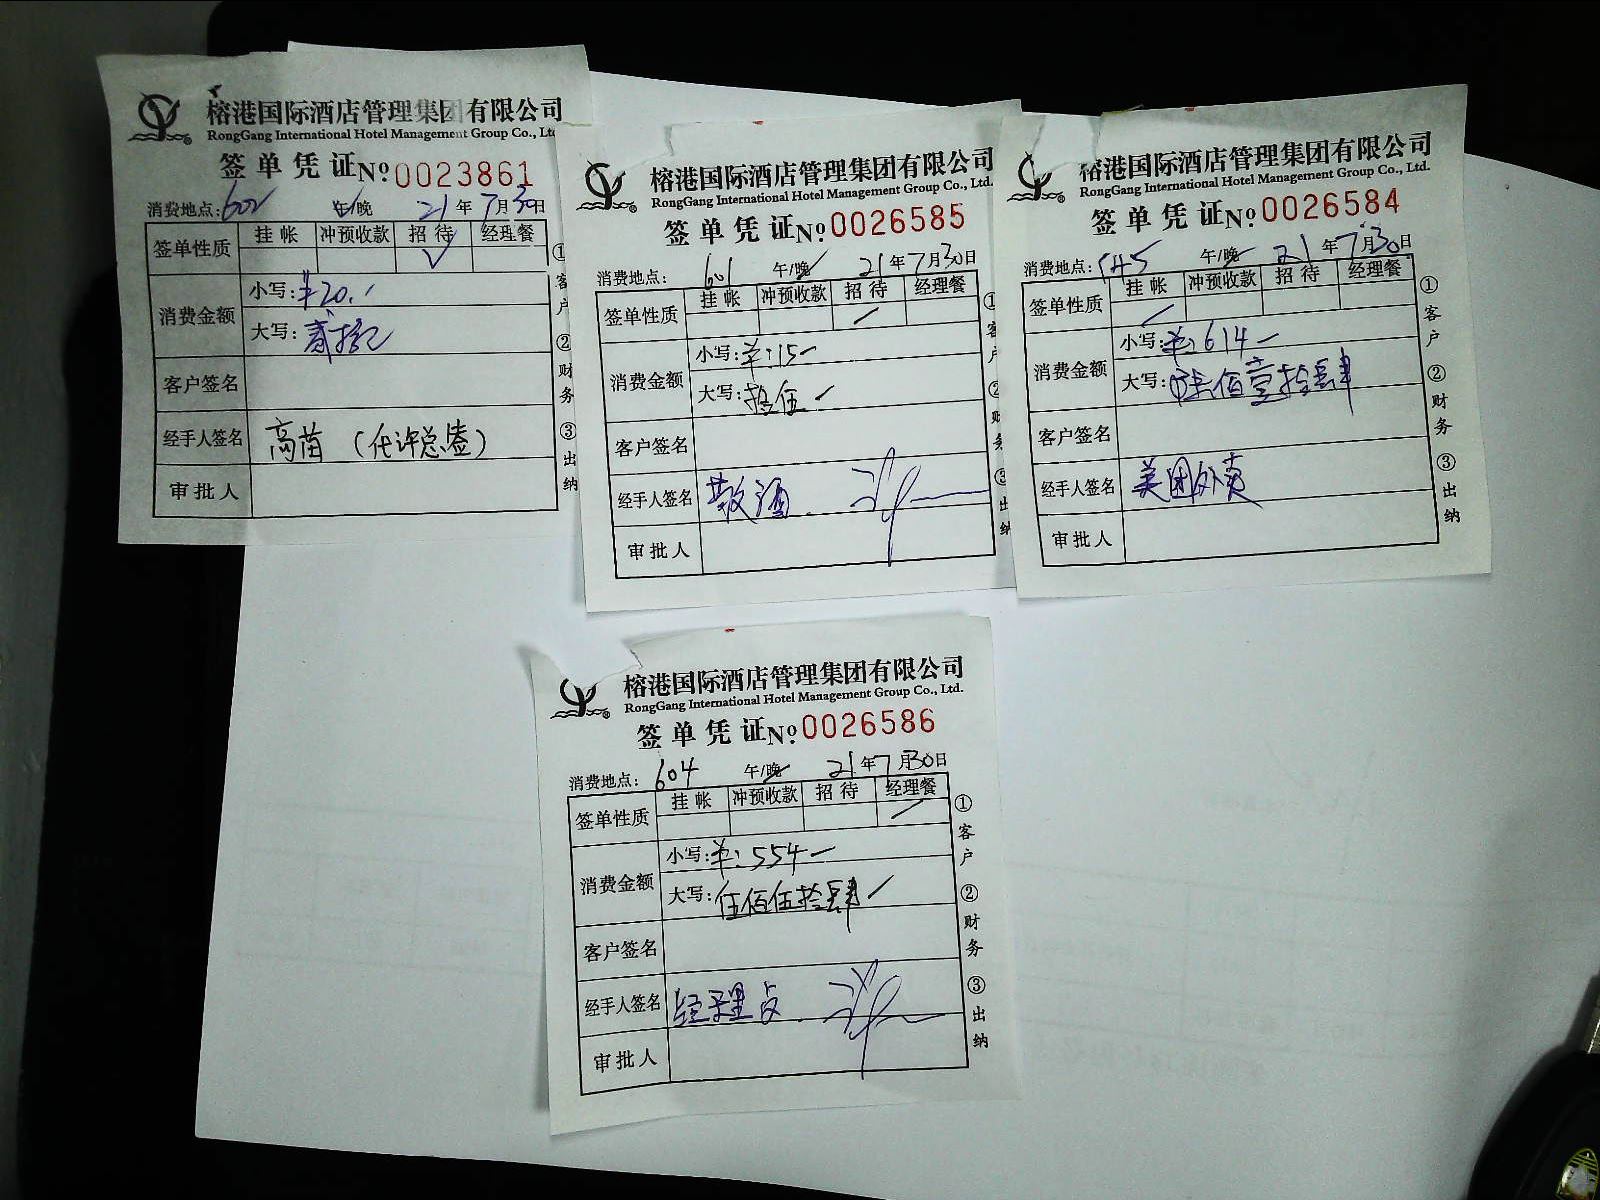 榕港国际酒店管理集团有限公司
RongGang International Hotel Management Group Co., Ltd
签单凭证 No. 0023861
消费地点: 602 午/晚 21年7月30日
签单性质 挂帐 冲预收款 招待 经理餐
✓
消费金额
小写: ¥20.
大写: 贰拾元
客户签名
经手人签名 高苗（代许总签）
审批人
①客户 ②财务 ③出纳
榕港国际酒店管理集团有限公司
RongGang International Hotel Management Group Co., Ltd.
签单凭证 No. 0026585
消费地点: 601 午/晚 21年7月30日
签单性质 挂帐 冲预收款 招待 经理餐
消费金额
小写: ¥:15一
大写: 拾伍
客户签名
经手人签名 敬酒
审批人
①客户 ②财务 ③出纳
榕港国际酒店管理集团有限公司
RongGang International Hotel Management Group Co., Ltd.
签单凭证 No. 0026584
消费地点: 545 午/晚 21年7月30日
签单性质 挂帐 冲预收款 招待 经理餐
消费金额
小写: ¥:614一
大写: 陆佰壹拾肆
客户签名
经手人签名 美团外卖
审批人
①客户 ②财务 ③出纳
榕港国际酒店管理集团有限公司
RongGang International Hotel Management Group Co., Ltd.
签单凭证 No. 0026586
消费地点: 604 午/晚 21年7月30日
签单性质 挂帐 冲预收款 招待 经理餐
消费金额
小写: ¥:554一
大写: 伍佰伍拾肆
客户签名
经手人签名 经理点
审批人
①客户 ②财务 ③出纳